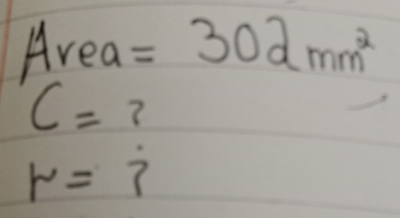 Area = 302 mm²
C = ?
r = ?